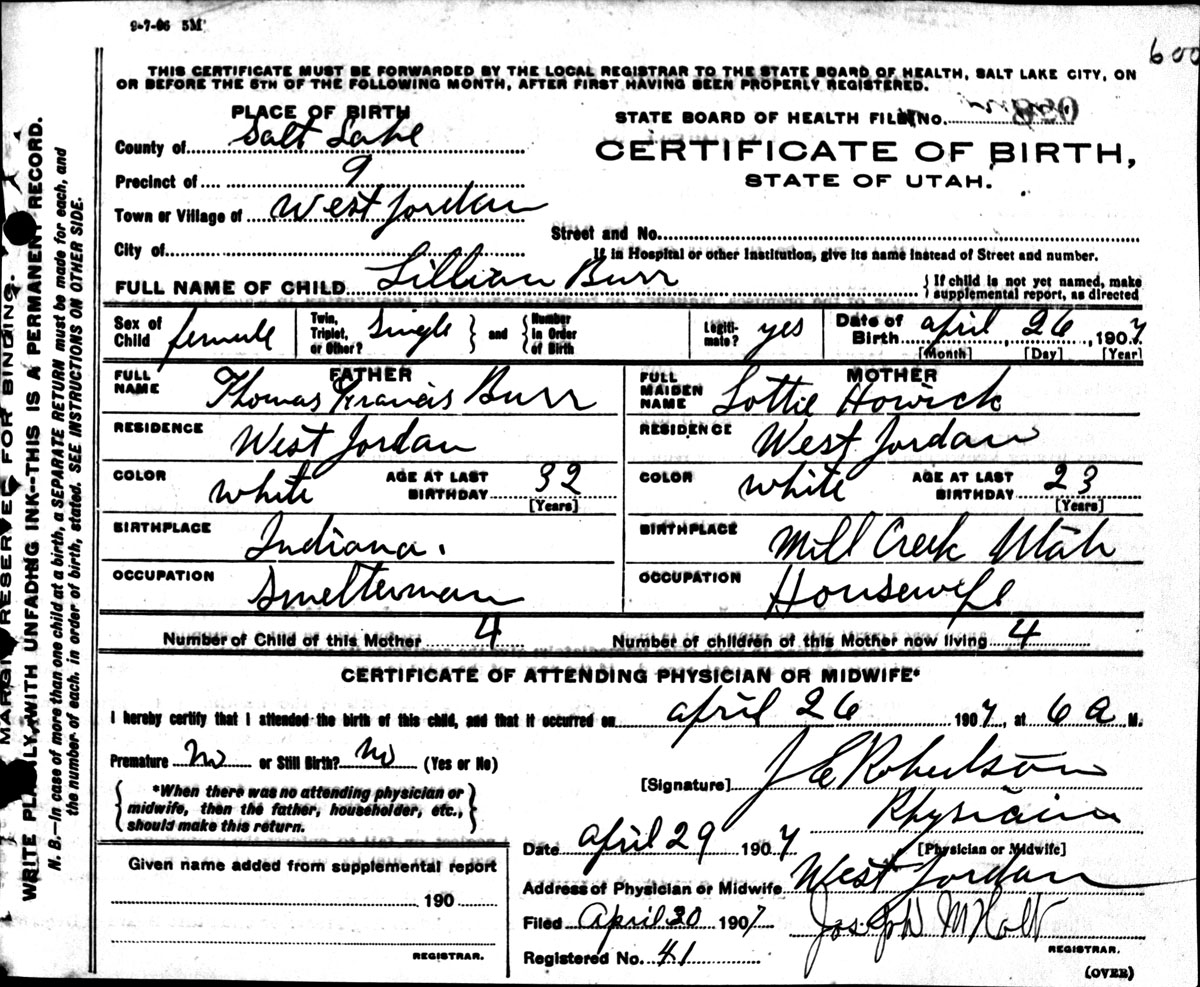 9-7-06 5M
600
THIS CERTIFICATE MUST BE FORWARDED BY THE LOCAL REGISTRAR TO THE STATE BOARD OF HEALTH, SALT LAKE CITY, ON
OR BEFORE THE 5TH OF THE FOLLOWING MONTH, AFTER FIRST HAVING BEEN PROPERLY REGISTERED.
PLACE OF BIRTH
County of Salt Lake
Precinct of 9
Town or Village of West Jordan
City of
STATE BOARD OF HEALTH FILE No.
CERTIFICATE OF BIRTH,
STATE OF UTAH.
Street and No.
If in Hospital or other Institution, give its name instead of Street and number.
FULL NAME OF CHILD Lillian Burr
{If child is not yet named, make
supplemental report, as directed
Sex of Child female
Twin, Triplet, or Other? Single } and { Number in Order of Birth
Legiti-mate? yes
Date of Birth april 26, 1907
[Month] [Day] [Year]
FATHER
FULL NAME Thomas Francis Burr
RESIDENCE West Jordan
COLOR white AGE AT LAST BIRTHDAY 32
[Years]
BIRTHPLACE Indiana.
OCCUPATION Smelterman
MOTHER
FULL MAIDEN NAME Lottie Howick
RESIDENCE West Jordan
COLOR white AGE AT LAST BIRTHDAY 23
[Years]
BIRTHPLACE Mill Creek Utah
OCCUPATION Housewife
Number of Child of this Mother 4 Number of children of this Mother now living 4
CERTIFICATE OF ATTENDING PHYSICIAN OR MIDWIFE*
I hereby certify that I attended the birth of this child, and that it occurred on april 26 1907, at 6 a M.
Premature No or Still Birth? No (Yes or No)
{*When there was no attending physician or
midwife, then the father, householder, etc.,
should make this return.}
[Signature] J E Robertson
Physician
[Physician or Midwife]
Date april 29 1907
Address of Physician or Midwife West Jordan
Filed April 30 1907 Joseph M Holt
REGISTRAR.
Registered No. 41
(OVER)
Given name added from supplemental report
190
REGISTRAR.
MARGIN RESERVED FOR BINDING.
WRITE PLAINLY, WITH UNFADING INK--THIS IS A PERMANENT RECORD.
N. B.—In case of more than one child at a birth, a SEPARATE RETURN must be made for each, and
the number of each, in order of birth, stated. SEE INSTRUCTIONS ON OTHER SIDE.